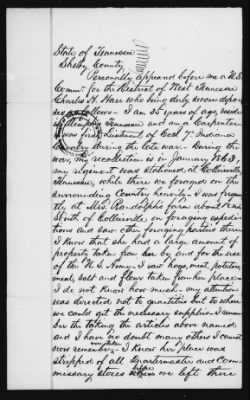 State of Tennessee
Shelby County
Personally appeared before me a U.S.
Commr for the District of West Tennessee
Charles H. Hare who being duly sworn depo-
ses as follows - I am 35 years of age, reside
at Memphis Tennessee and am a Carpenter
I was first Lieutenant of Co. 7th Indiana
Cavalry during the late war - During the
war, my recollection is in January 1863,
my regiment was stationed at Collierville
Tennessee, while there we foraged on the
surrounding country heavily. I was frequent-
ly at Mrs. Randolph's farm about
South of Collierville on foraging expedi-
tions and saw other foraging parties there
I know that she had a large amount of
property taken from her by and for the use
of the U.S. Army - I saw hogs, meat, potatoes,
meal, salt and flour taken from her place
I do not know how much - my attention
was directed not to quantities but to where
we could get the necessary supplies. I remem-
ber the taking the articles above named;
and I have no doubt many others I cannot
now remember - I know her place was
stripped of all Quartermaster and Com-
missary stores before we left there